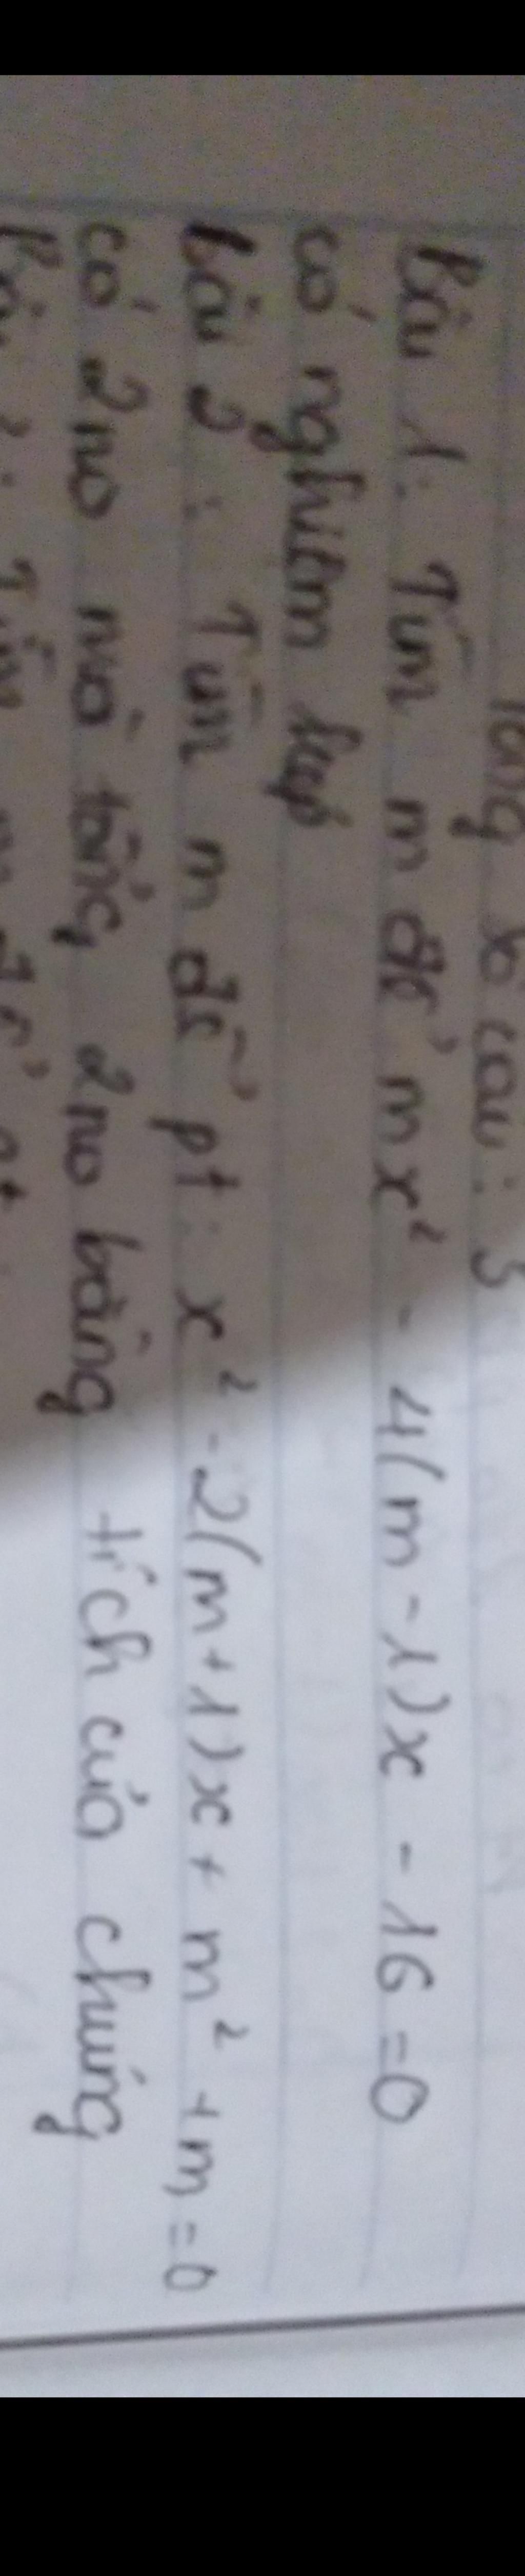 Bài 1: Tìm m để mx² - 4(m-1)x - 16 = 0
có nghiệm kép
bài 2: Tìm m để pt: x² - 2(m+1)x + m² + m = 0
có 2no mà tổng 2no bằng tích của chúng